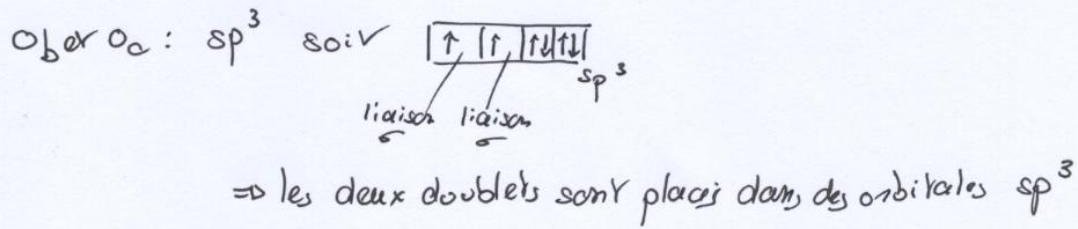 Ob et Oc : sp³ soit |↑|↑|↑↓|↑↓|
sp³
liaison liaison
σ σ
⇒ les deux doublets sont placés dans des orbitales sp³